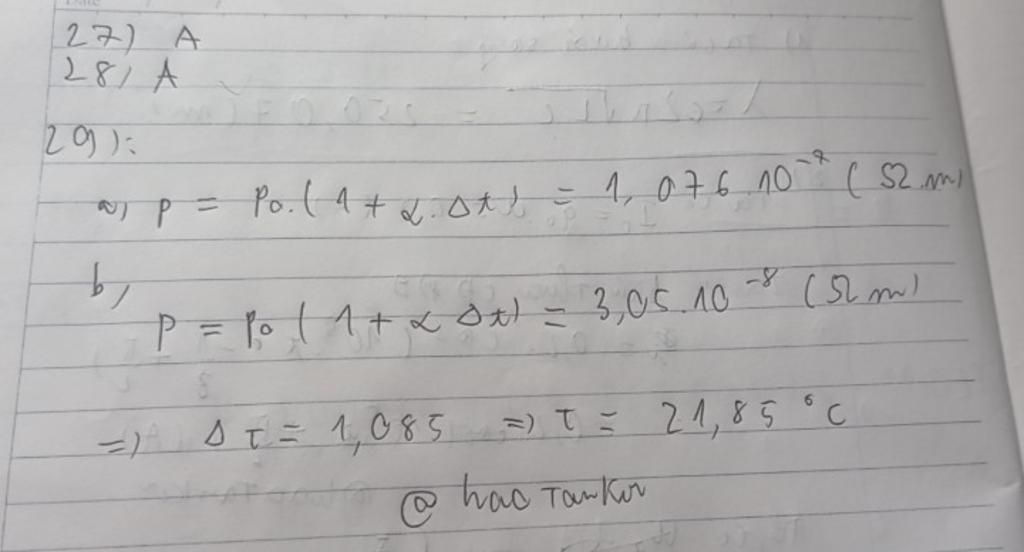 27) A
28) A
29):
a) ρ = ρ₀.(1 + α.Δt) = 1,076.10⁻⁷ (Ω.m)
b)
ρ = ρ₀ (1 + α Δt) = 3,05.10⁻⁸ (Ω m)
=) Δ τ = 1,085 =) τ = 21,85 °C
@ hao Tankir